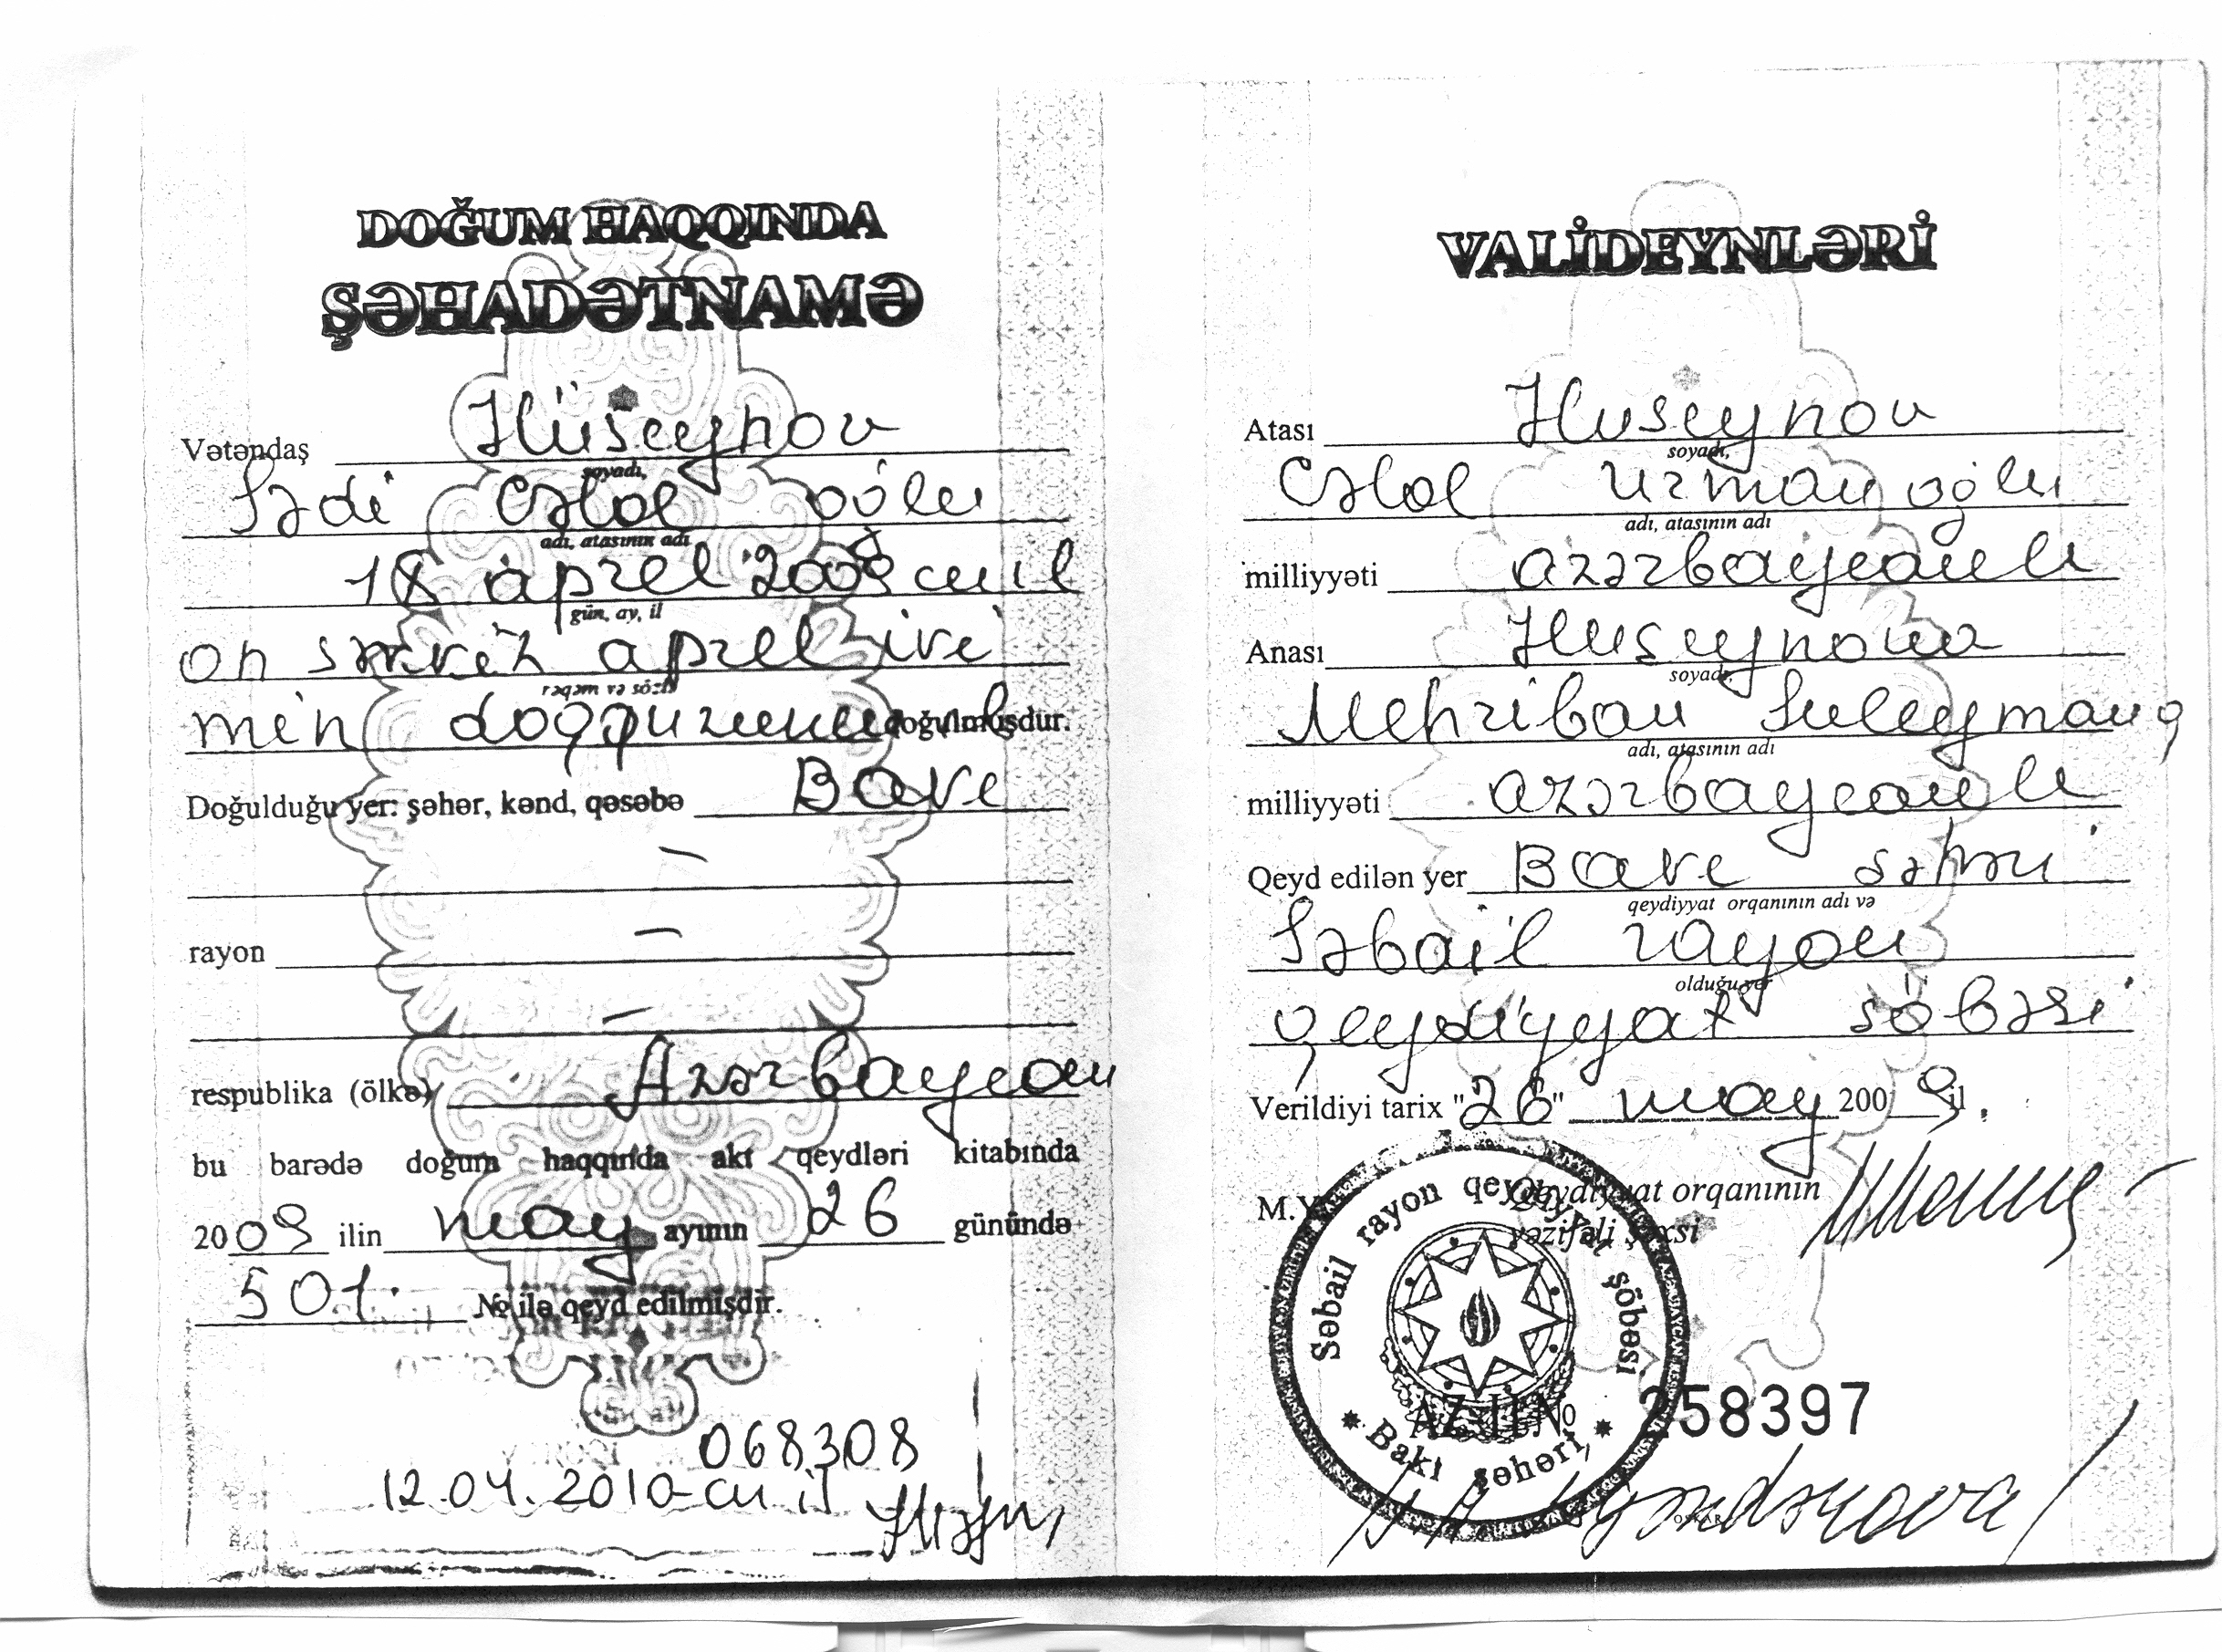 DOĞUM HAQQINDA
ŞƏHADƏTNAMƏ
Vətəndaş Hüseynov
soyadı,
Sədi Cəlal oğlu
adı, atasının adı
18 aprel 2009 cu il
gün, ay, il
on səkkiz aprel iki
rəqəm və sözlə
min doqquzuncu doğulmuşdur.
Doğulduğu yer: şəhər, kənd, qəsəbə Bakı
—
rayon —
—
respublika (ölkə) Azərbaycan
bu barədə doğum haqqında akt qeydləri kitabında
2009 ilin may ayının 26 günündə
501. № ilə qeyd edilmişdir.
068308
12.04.2010-cu il
VALİDEYNLƏRİ
Atası Huseynov
soyadı,
Cəlal Urman oğlu
adı, atasının adı
milliyyəti azərbaycanlı
Anası Huseynova
soyadı,
Mehriban Suleyman q
adı, atasının adı
milliyyəti azərbaycanlı
Qeyd edilən yer Bakı səhəri
qeydiyyat orqanının adı və
Səbail rayon
olduğu yer
qeydiyyat söbəsi
Verildiyi tarix "26" may 2009 il.
M.Y. Qeydiyyat orqanının
vəzifəli şəxsi
Səbail rayon qeydiyyat şöbəsi
* Bakı şəhəri *
AZ-II № 258397